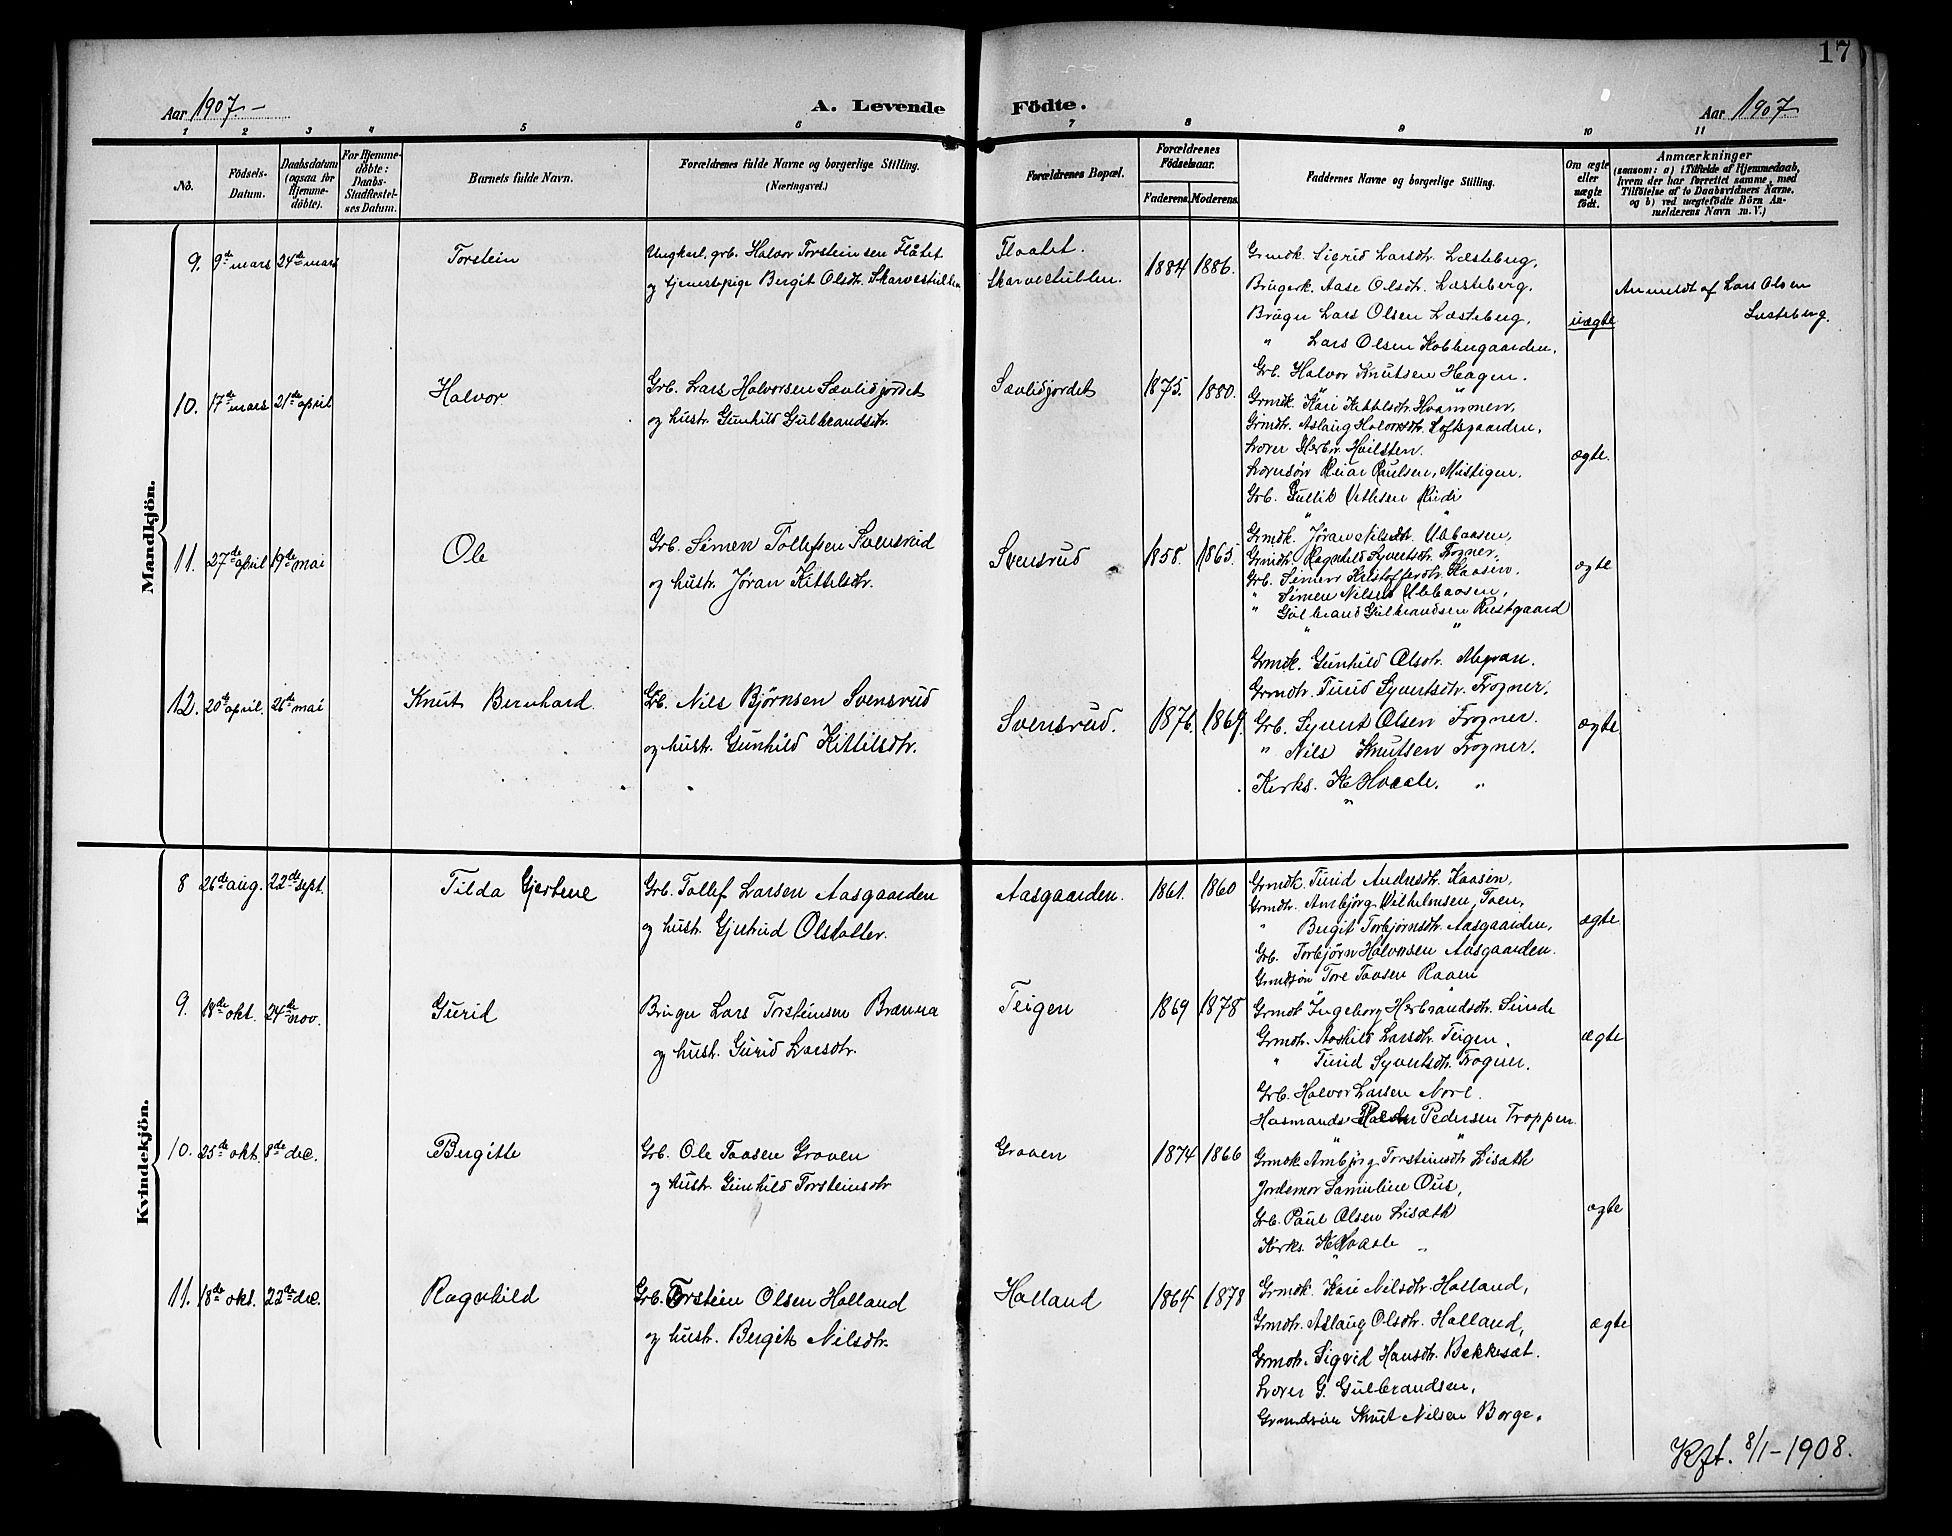 17
Aar 1907. –
A. Levende Födte.
Aar 1907
1 2 3 4 5 6 7 8 9 10 11
No.
Födsels-
Datum.
Daabsdatum
(ogsaa for
Hjemme-
döbte).
For Hjemme-
döbte:
Daabs-
Stadfæstel-
ses Datum.
Barnets fulde Navn.
Forældrenes fulde Navne og borgerlige Stilling.
(Næringsvei.)
Forældrenes Bopæl.
Forældrenes
Födselsaar.
Faderens. Moderens.
Faddernes Navne og borgerlige Stilling.
Om ægte
eller
uægte
födt.
Anmærkninger
(saasom: a) i Tilfælde af Hjemmedaab,
hvem der har forrettet samme, med
Tilföielse af to Daabsvidners Navne,
og b) ved uægtefödte Börn An-
melderens Navn m. V.)
Mandkjön.
9. 9de mars 24de mars
Torstein
Ungkarl, grb. Halvor Torsteinsen Flåtet
og tjenestepige Bergit Olsdtr. Skarvestubben
Flaatet.
Skarvestubben.
1884 1886.
Grmdk. Sigrid Larsdtr. Læsteberg,
Brugerk. Aase Olsdtr. Læsteberg,
Bruger Lars Olsen Læsteberg,
" Lars Olsen Kobbergaarden,
uægte
Anmeldt af Lars Olsen
Lesteberg.
10. 17de mars 21de april
Halvor
Grb. Lars Halvorsen Sævlidjordet
og hustr. Gunhild Gulbrandsdtr.
Sævlidjordet
1875. 1880.
Grb. Halvor Knutsen Hagen.
Grmdk. Kari Kittelsdtr. Hvammen,
Grmdtr. Aslaug Halvorsdtr. Loftsgaarden,
Lærer Herbr. Hvilsten.
Lærersøn Reiar Paulsen, Mustigen.
Grb. Gullik Vetlesen Rudi
ægte.
11. 27de april 19de mai
Ole
Grb. Simen Tollefsen Svensrud
og hustr. Jøran Kittelsdtr.
Svensrud
1858. 1865.
Grmdk. Jøran Nilsdtr. Ubbaasen,
Grmdtr. Ragnhild Syvertsdtr. Frogner,
Grb. Simen Kristofferdtr. Kaasen.
" Simen Nilsen Ubbaasen,
" Gulbrand Gulbrandsen Rustgaard
ægte
12. 20de april. 26de mai
Knut Bernhard.
Grb. Nils Bjørnsen Svensrud
og hustr. Gunhild Kittilsdtr.
Svensrud.
1876. 1869.
Grmdk. Gunhild Olsdtr. Megran.
Grmdtr. Turid Syvertsdtr. Frogner,
Grb. Syvert Olsen Frogner.
" Nils Knutsen Frogner.
Kirks. K Hvaale.
ægte
Kvindekjön.
8 26de aug. 22de sept.
Tilda Gjertine
Grb. Tollef Larsen Aasgaarden
og hustr. Gjertrud Olsdatter.
Aasgaarden.
1861. 1860
Grmdk. Turid Andresdtr. Kaasen,
Grmdtr. Ambjørg Vilhelmsen, Foen,
" Bergit Torbjørnsdtr. Aasgaarden,
Grb. Torbjørn Halvorsen Aasgaarden.
Grmdsøn Tore Taasen Raaen
ægte
9. 18de okt. 24de nov.
Gurid
Bruger Lars Torsteinsen Brænna
og hust. Gurid Larsdtr.
Teigen
1869 1878
Grmdk Ingeborg Herbrandsdtr. Sunde
Grmdtr. Aashild Larsdtr. Teigen,
" Turid Syvertsdtr. Frogner.
Grb. Halvor Larsen Nørl.
Husmands Peder Pedersen Troppen.
ægte
10. 25de okt. 8de dec.
Bergitte
Grb. Ole Taasen Graven
og hustr. Gunhild Torsteinsdtr
Graven
1874 1866
Grmdk. Ambjørg Torsteinsdtr Lisæth
Jordemor Samuline Ous,
Grb. Paul Olsen Lisæth
Kirks. K Hvaale
ægte
11. 18de okt. 22de dec.
Ragnhild
Grb. Torstein Olsen Holland
og hustr. Bergit Nilsdtr.
Holland
1864 1878
Grmdk. Kari Nilsdtr. Holland,
Grmdtr. Aslaug Olsdtr. Holland,
Grmdtr. Sigrid Hansdtr. Bekkesæt.
Lærer G. Gulbrandsen,
Grmndsøn Knut Nilsen Borge.
ægte
Kft. 8/1–1908.